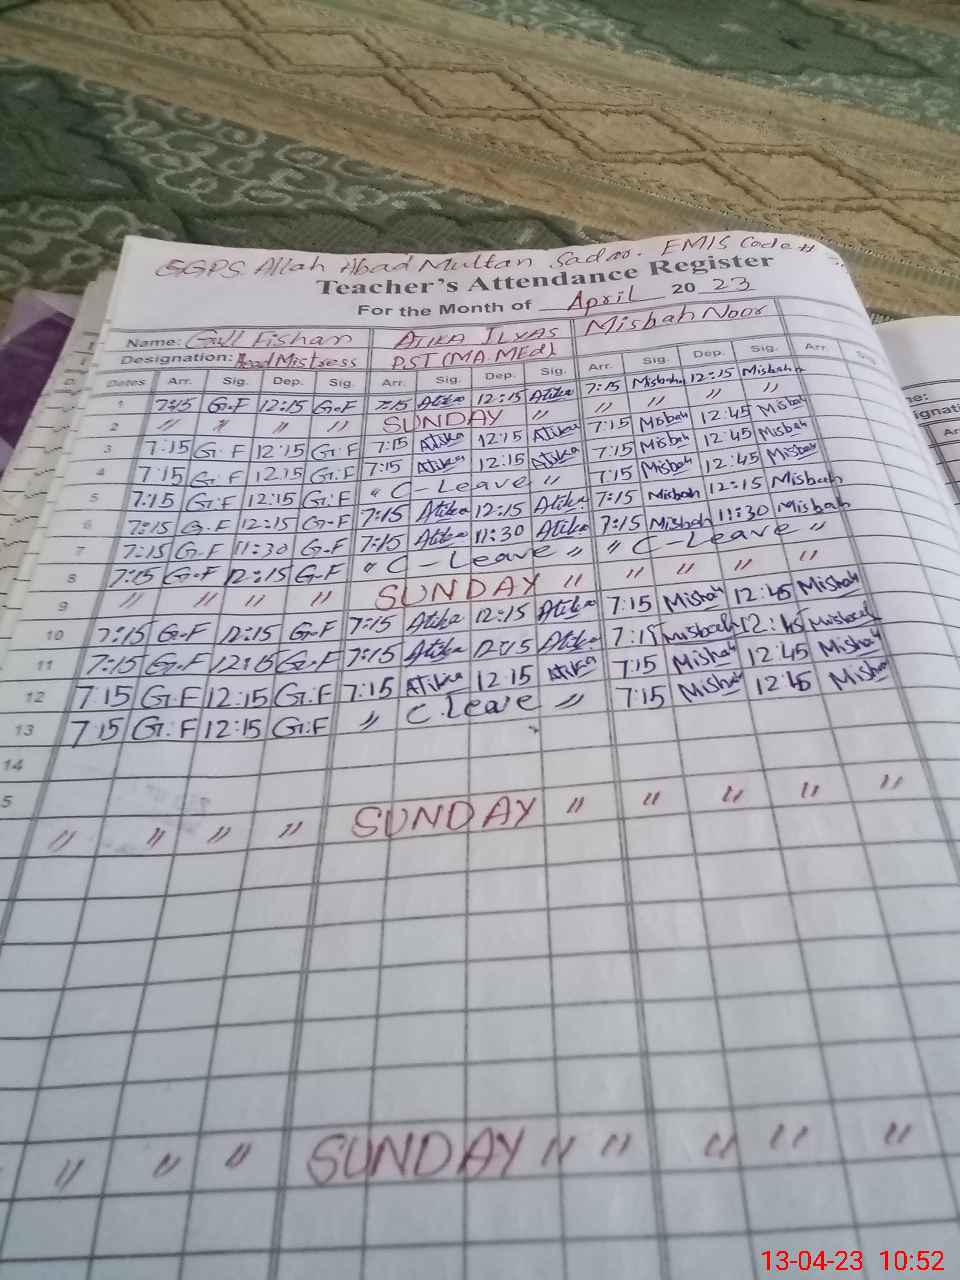 GGPS Allah Abad Multan Sadar. EMIS Code #
Teacher's Attendance Register
For the Month of April 2023
Name: Gull Fishan ATIKA ILYAS Misbah Noor
Designation: Head Mistress PST (MA. MEd)
Dates Arr. Sig. Dep. Sig. Arr. Sig. Dep. Sig. Arr. Sig. Dep. Sig. Arr. Sig.
1 7:15 G.F 12:15 G.F 7:15 Atika 12:15 Atika 7:15 Misbah 12:15 Misbah
2 " " " " SUNDAY " " " " "
3 7:15 G.F 12:15 G.F 7:15 Atika 12:15 Atika 7:15 Misbah 12:45 Misbah
4 7:15 G.F 12:15 G.F 7:15 Atika 12:15 Atika 7:15 Misbah 12:45 Misbah
5 7:15 G.F 12:15 G.F " C-Leave " 7:15 Misbah 12:45 Misbah
6 7:15 G.F 12:15 G.F 7:15 Atika 12:15 Atika 7:15 Misbah 12:15 Misbah
7 7:15 G.F 11:30 G.F 7:15 Atika 11:30 Atika 7:15 Misbah 11:30 Misbah
8 7:15 G.F 12:15 G.F " C-Leave " " C-Leave "
9 " " " " SUNDAY " " " " "
10 7:15 G.F 12:15 G.F 7:15 Atika 12:15 Atika 7:15 Misbah 12:45 Misbah
11 7:15 G.F 12:15 G.F 7:15 Atika 12:15 Atika 7:15 Misbah 12:45 Misbah
12 7:15 G.F 12:15 G.F 7:15 Atika 12:15 Atika 7:15 Misbah 12:45 Misbah
13 7:15 G.F 12:15 G.F " C.Leave " 7:15 Misbah 12:45 Misbah
14
5
" " " " SUNDAY " " " " "
" " " SUNDAY " " " " "
13-04-23 10:52